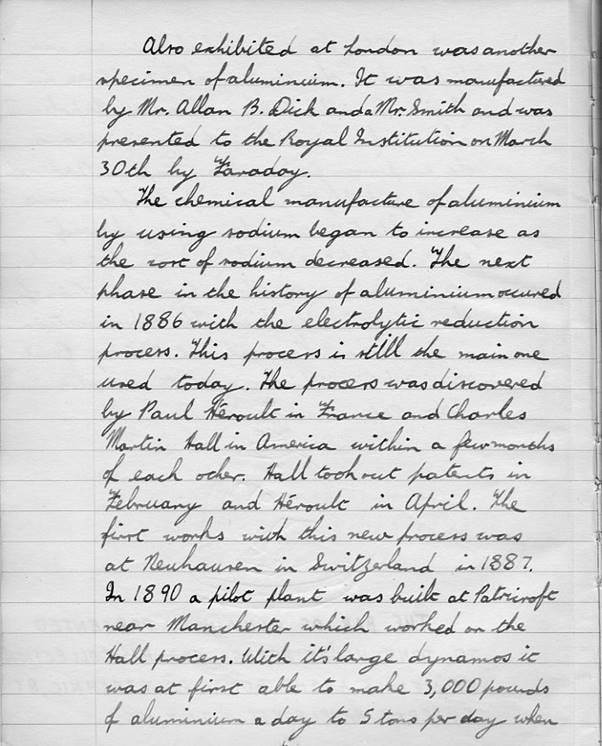 Also exhibited at London was another
specimen of aluminium. It was manufactured
by Mr. Allan B. Dick and a Mr. Smith and was
presented to the Royal Institution on March
30th by Faraday.
The chemical manufacture of aluminium
by using sodium began to increase as
the cost of sodium decreased. The next
phase in the history of aluminium occured
in 1886 with the electrolytic reduction
process. This process is still the main one
used today. The process was discovered
by Paul Héroult in France and Charles
Martin Hall in America within a few months
of each other. Hall took out patents in
February and Héroult in April. The
first works with this new process was
at Neuhausen in Switzerland in 1887.
In 1890 a pilot plant was built at Patricroft
near Manchester which worked on the
Hall process. With it's large dynamos it
was at first able to make 3,000 pounds
of aluminium a day to 5 tons per day when